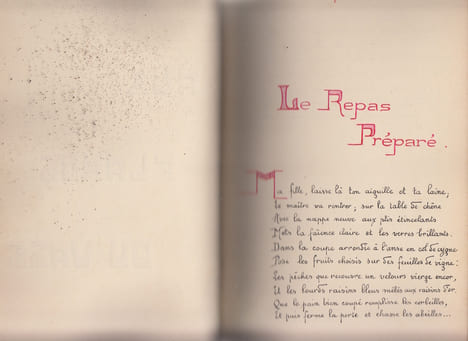 Le Repas
Préparé.
Ma fille, laisse là ton aiguille et ta laine;
Le maître va rentrer; sur la table de chêne
Avec la nappe neuve aux plis étincelants
Mets la faïence claire et les verres brillants.
Dans la coupe arrondie à l'anse en col de cygne
Pose les fruits choisis sur des feuilles de vigne:
Les pêches que recouvre un velours vierge encor,
Et les lourds raisins bleus mêlés aux raisins d'or.
Que le pain bien coupé remplisse les corbeilles,
Et puis ferme la porte et chasse les abeilles...